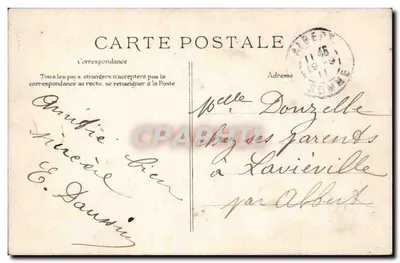 CARTE POSTALE
Correspondance
Tous les pays étrangers n'acceptent pas la
correspondance au recto. se renseigner à la Poste
Adresse
ALBERT
11 45
19 - 9
11
SOMME
Amitié bien
sincère
E.
Mlle Douzelle
chez ses parents
à Laviéville
par Albert
CPARAMA